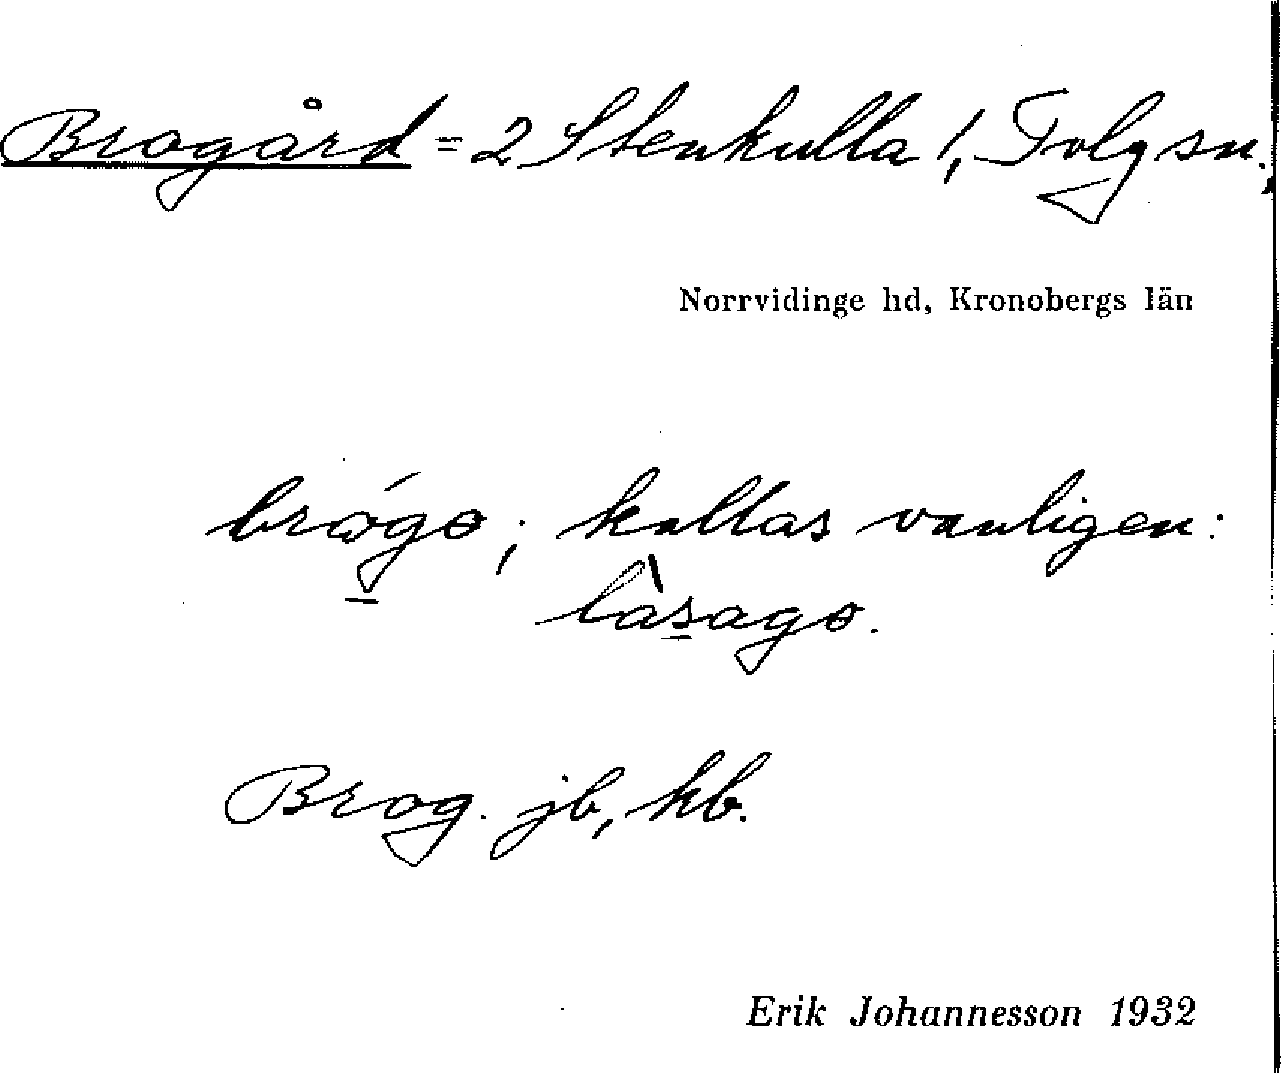 Brogård = 2 Stenkulla 1, Tolg sn.,
Norrvidinge hd, Kronobergs län
brógo; kallas vanligen:
làsago.
Brog. jb, hb.
Erik Johannesson 1932